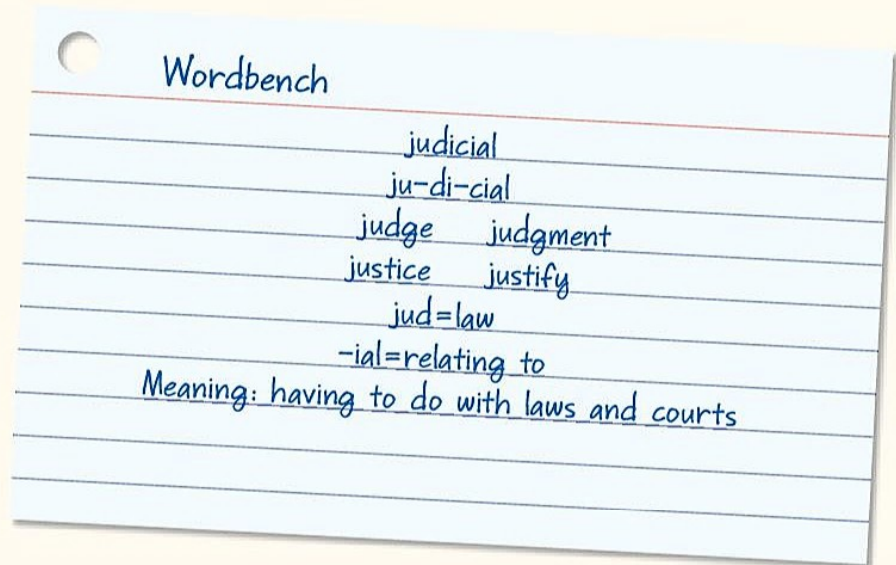 Wordbench
judicial
ju-di-cial
judge judgment
justice justify
jud=law
-ial=relating to
Meaning: having to do with laws and courts